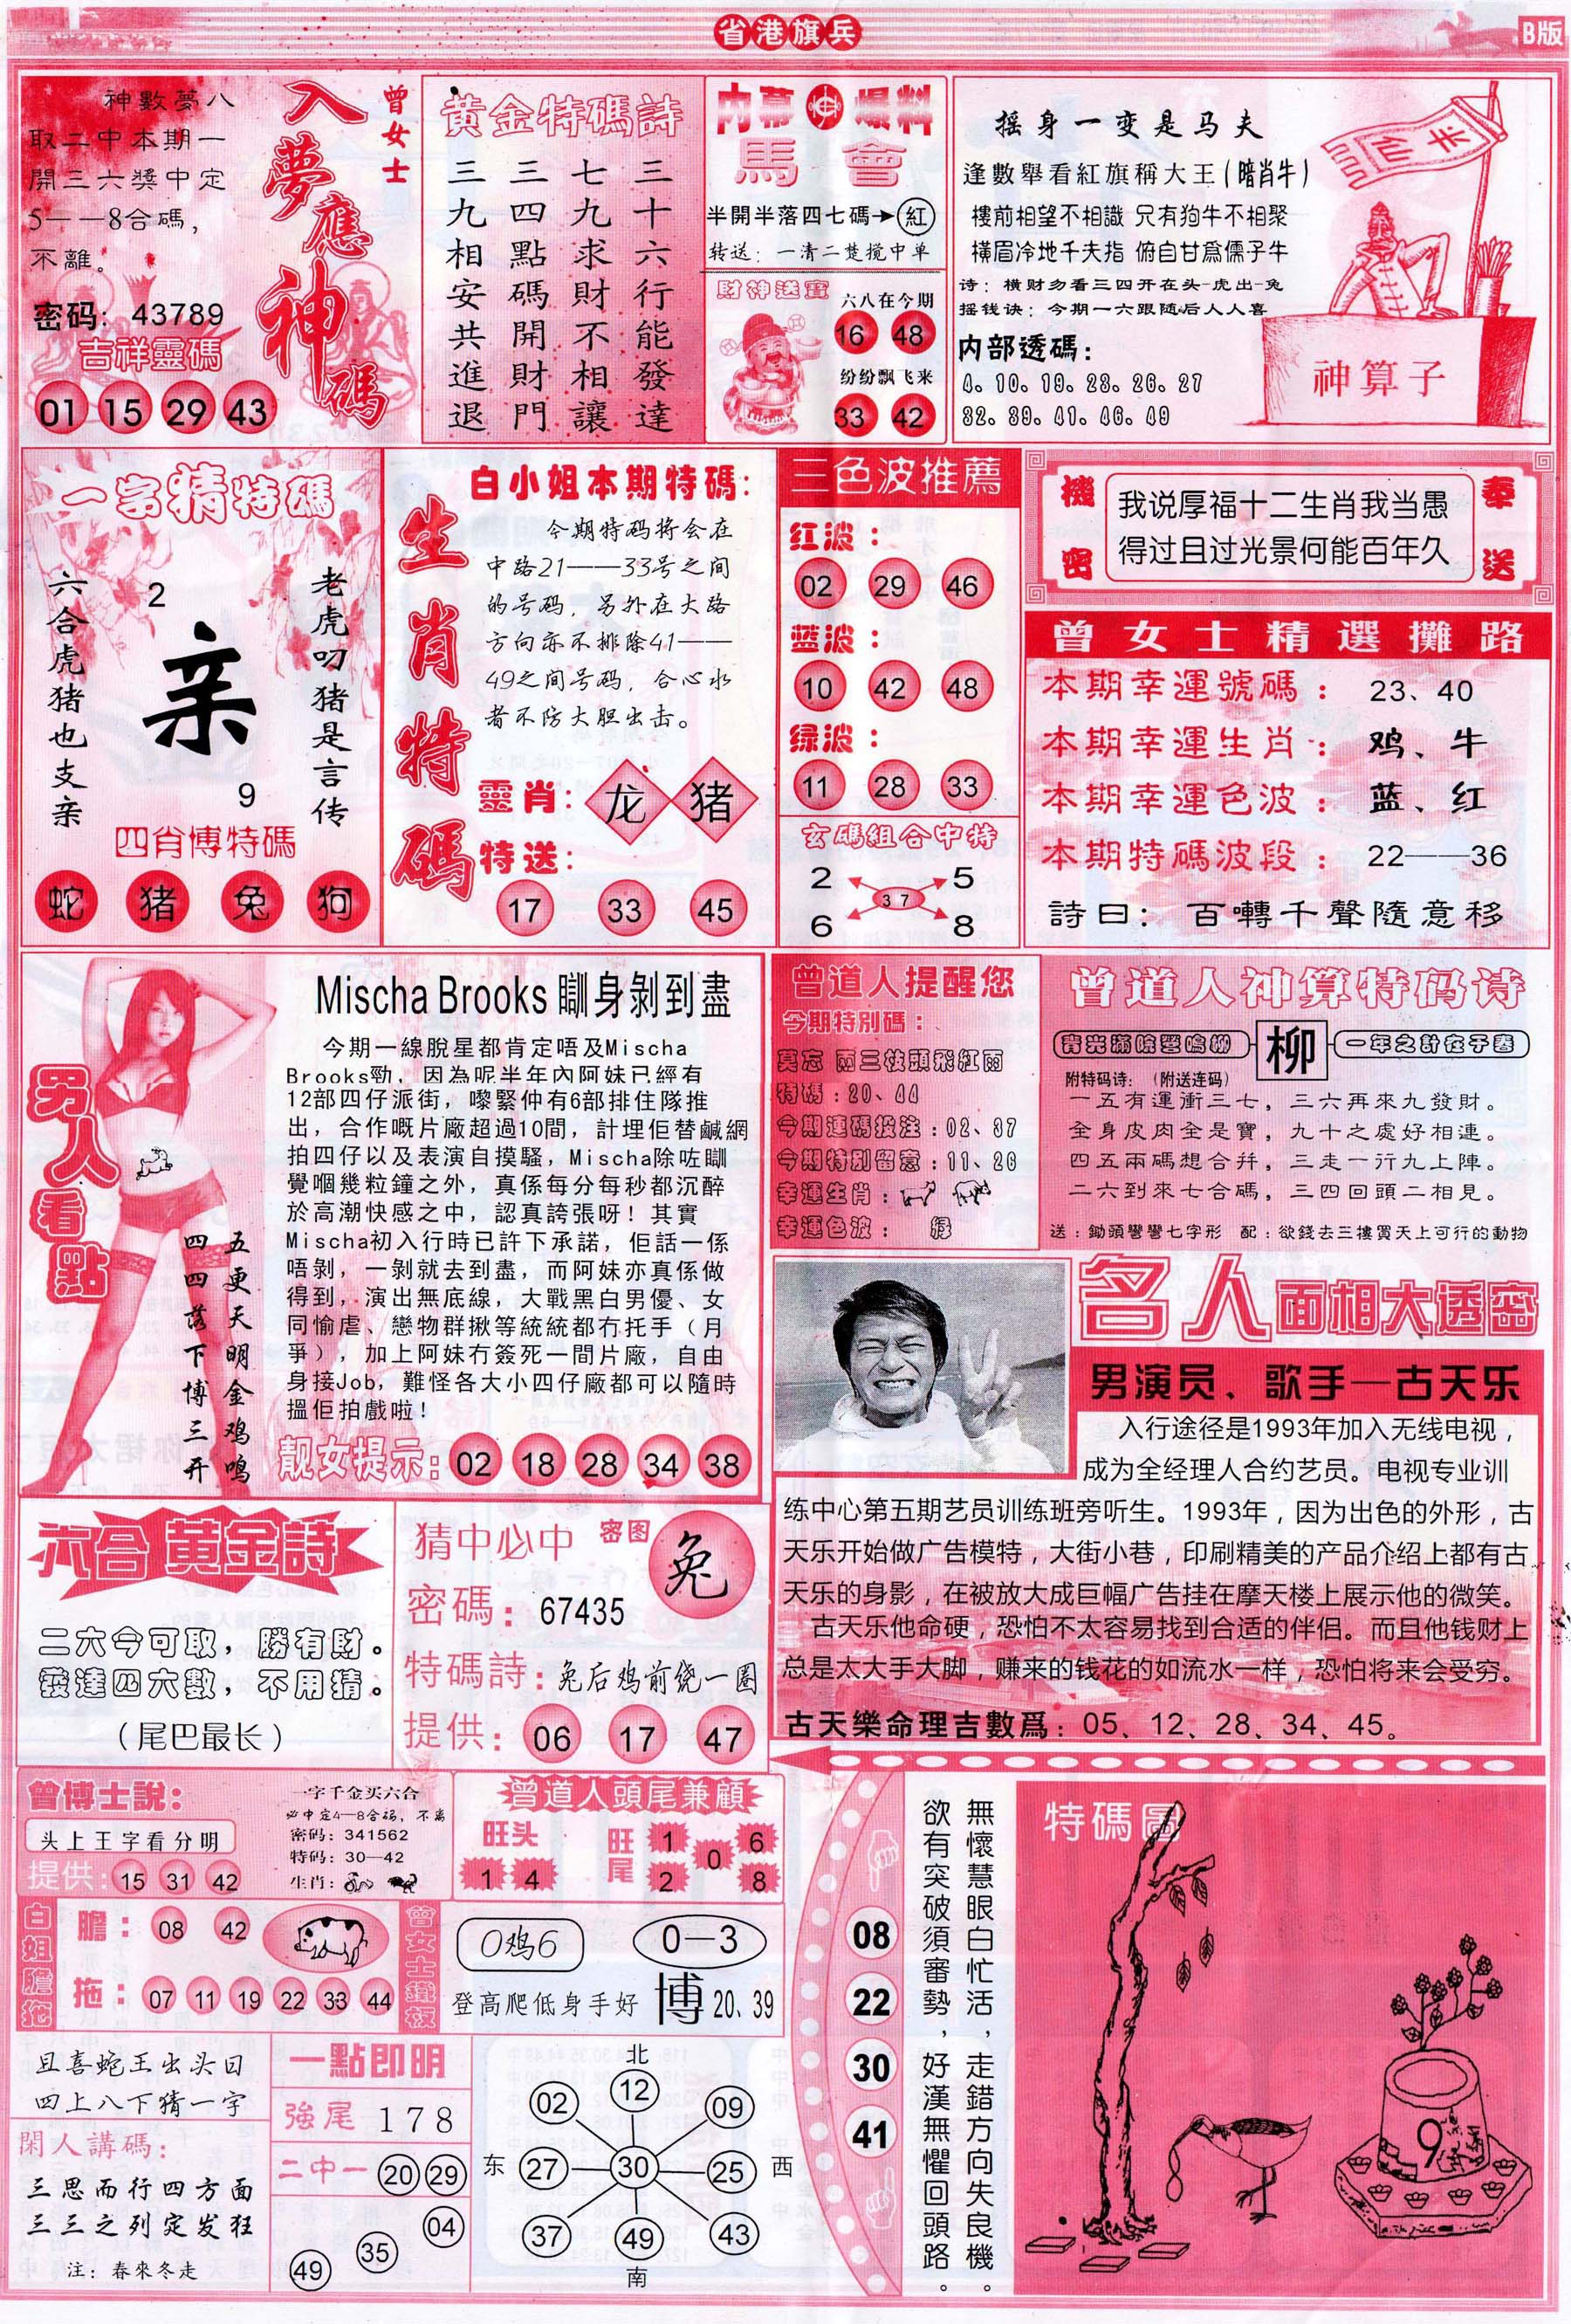 省港旗兵
B版
曾女士
入夢應神碼
神數夢八
取二中本期一
開三六獎中定
5——8合碼，
不離。
密码：43789
吉祥靈碼
01 15 29 43
黃金特碼詩
三十六行能發達
七九求財不相讓
三四點碼開財門
三九相安共進退
内幕爆料
馬會
半開半落四七碼→紅
转送：一清二楚搅中单
財神送寶
六八在今期
16 48
纷纷飘飞来
33 42
摇身一变是马夫
逢數舉看紅旗稱大王(暗肖牛)
樓前相望不相識 只有狗牛不相聚
橫眉冷地千夫指 俯自甘爲儒子牛
诗：横财勿看三四开在头-虎出-兔
摇钱诀：今期一六跟随后人人喜
内部透碼：
4、10、19、23、26、27
32、39、41、46、49
半仙
神算子
一字猜特碼
老虎叼猪是言传
2
亲
9
六合虎猪也支亲
四肖博特碼
蛇 猪 兔 狗
生肖特碼
白小姐本期特碼：
今期特码将会在
中路21——33号之间
的号码，另外在大路
方向亦不排除41——
49之间号码，合心水
者不防大胆出击。
靈肖：龙 猪
特送：
17 33 45
三色波推薦
红波：
02 29 46
蓝波：
10 42 48
绿波：
11 28 33
玄碼組合中特
2 5
37
6 8
機密
我说厚福十二生肖我当愚
得过且过光景何能百年久
奉送
曾女士精選攤路
本期幸運號碼：23、40
本期幸運生肖：鸡、牛
本期幸運色波：蓝、红
本期特碼波段：22——36
詩曰：百囀千聲隨意移
男人看點
五更天明金鸡鸣
四四落下博三开
Mischa Brooks 瞓身剝到盡
今期一線脫星都肯定唔及Mischa
Brooks勁，因為呢半年內阿妹已經有
12部四仔派街，嚟緊仲有6部排住隊推
出，合作嘅片廠超過10間，計埋佢替鹹網
拍四仔以及表演自摸騷，Mischa除咗瞓
覺嗰幾粒鐘之外，真係每分每秒都沉醉
於高潮快感之中，認真誇張呀！其實
Mischa初入行時已許下承諾，佢話一係
唔剝，一剝就去到盡，而阿妹亦真係做
得到，演出無底線，大戰黑白男優、女
同愉虐、戀物群揪等統統都冇托手（月
爭），加上阿妹冇簽死一間片廠，自由
身接Job，難怪各大小四仔廠都可以隨時
搵佢拍戲啦！
靓女提示：02 18 28 34 38
曾道人提醒您
今期特別碼：
莫忘 兩三枝頭飛紅雨
特碼：20、44
今期連碼投注：02、37
今期特別留意：11、26
幸運生肖：
幸運色波：绿
曾道人神算特码诗
柳
一年之計在于春
附特码诗：（附送连码）
一五有運衝三七，三六再來九發財。
全身皮肉全是寶，九十之處好相連。
四五兩碼想合幷，三走一行九上陣。
二六到來七合碼，三四回頭二相見。
送：鋤頭彎彎七字形 配：欲錢去三樓買天上可行的動物
名人面相大透密
男演员、歌手—古天乐
入行途径是1993年加入无线电视，
成为全经理人合约艺员。电视专业训
练中心第五期艺员训练班旁听生。1993年，因为出色的外形，古
天乐开始做广告模特，大街小巷，印刷精美的产品介绍上都有古
天乐的身影，在被放大成巨幅广告挂在摩天楼上展示他的微笑。
古天乐他命硬，恐怕不太容易找到合适的伴侣。而且他钱财上
总是太大手大脚，赚来的钱花的如流水一样，恐怕将来会受穷。
古天樂命理吉數爲：05、12、28、34、45。
六合黄金詩
二六今可取，勝有財。
發達四六數，不用猜。
（尾巴最长）
猜中必中 密图 兔
密碼：67435
特碼詩：兔后鸡前绕一圈
提供：06 17 47
曾博士說：
头上王字看分明
提供：15 31 42
一字千金买六合
必中定4—8合码，不离
密码：341562
特码：30—42
生肖：
曾道人頭尾兼顧
旺头
1 4
旺尾
1 6
0
2 8
白姐膽拖
膽：08 42
拖：07 11 19 22 33 44
曾女士鐵板
0鸡6
0—3
登高爬低身手好 博 20、39
且喜蛇王出头日
四上八下猜一字
閑人講碼：
三思而行四方面
三三之列定发狂
注：春來冬走
一點即明
強尾 178
二中一 20 29
04
35
49
北
02 12 09
东 27 30 25 西
37 49 43
南
08
22
30
41
無懷慧眼白忙活，走錯方向失良機。
欲有突破須審勢，好漢無懼回頭路。
特碼圖
9